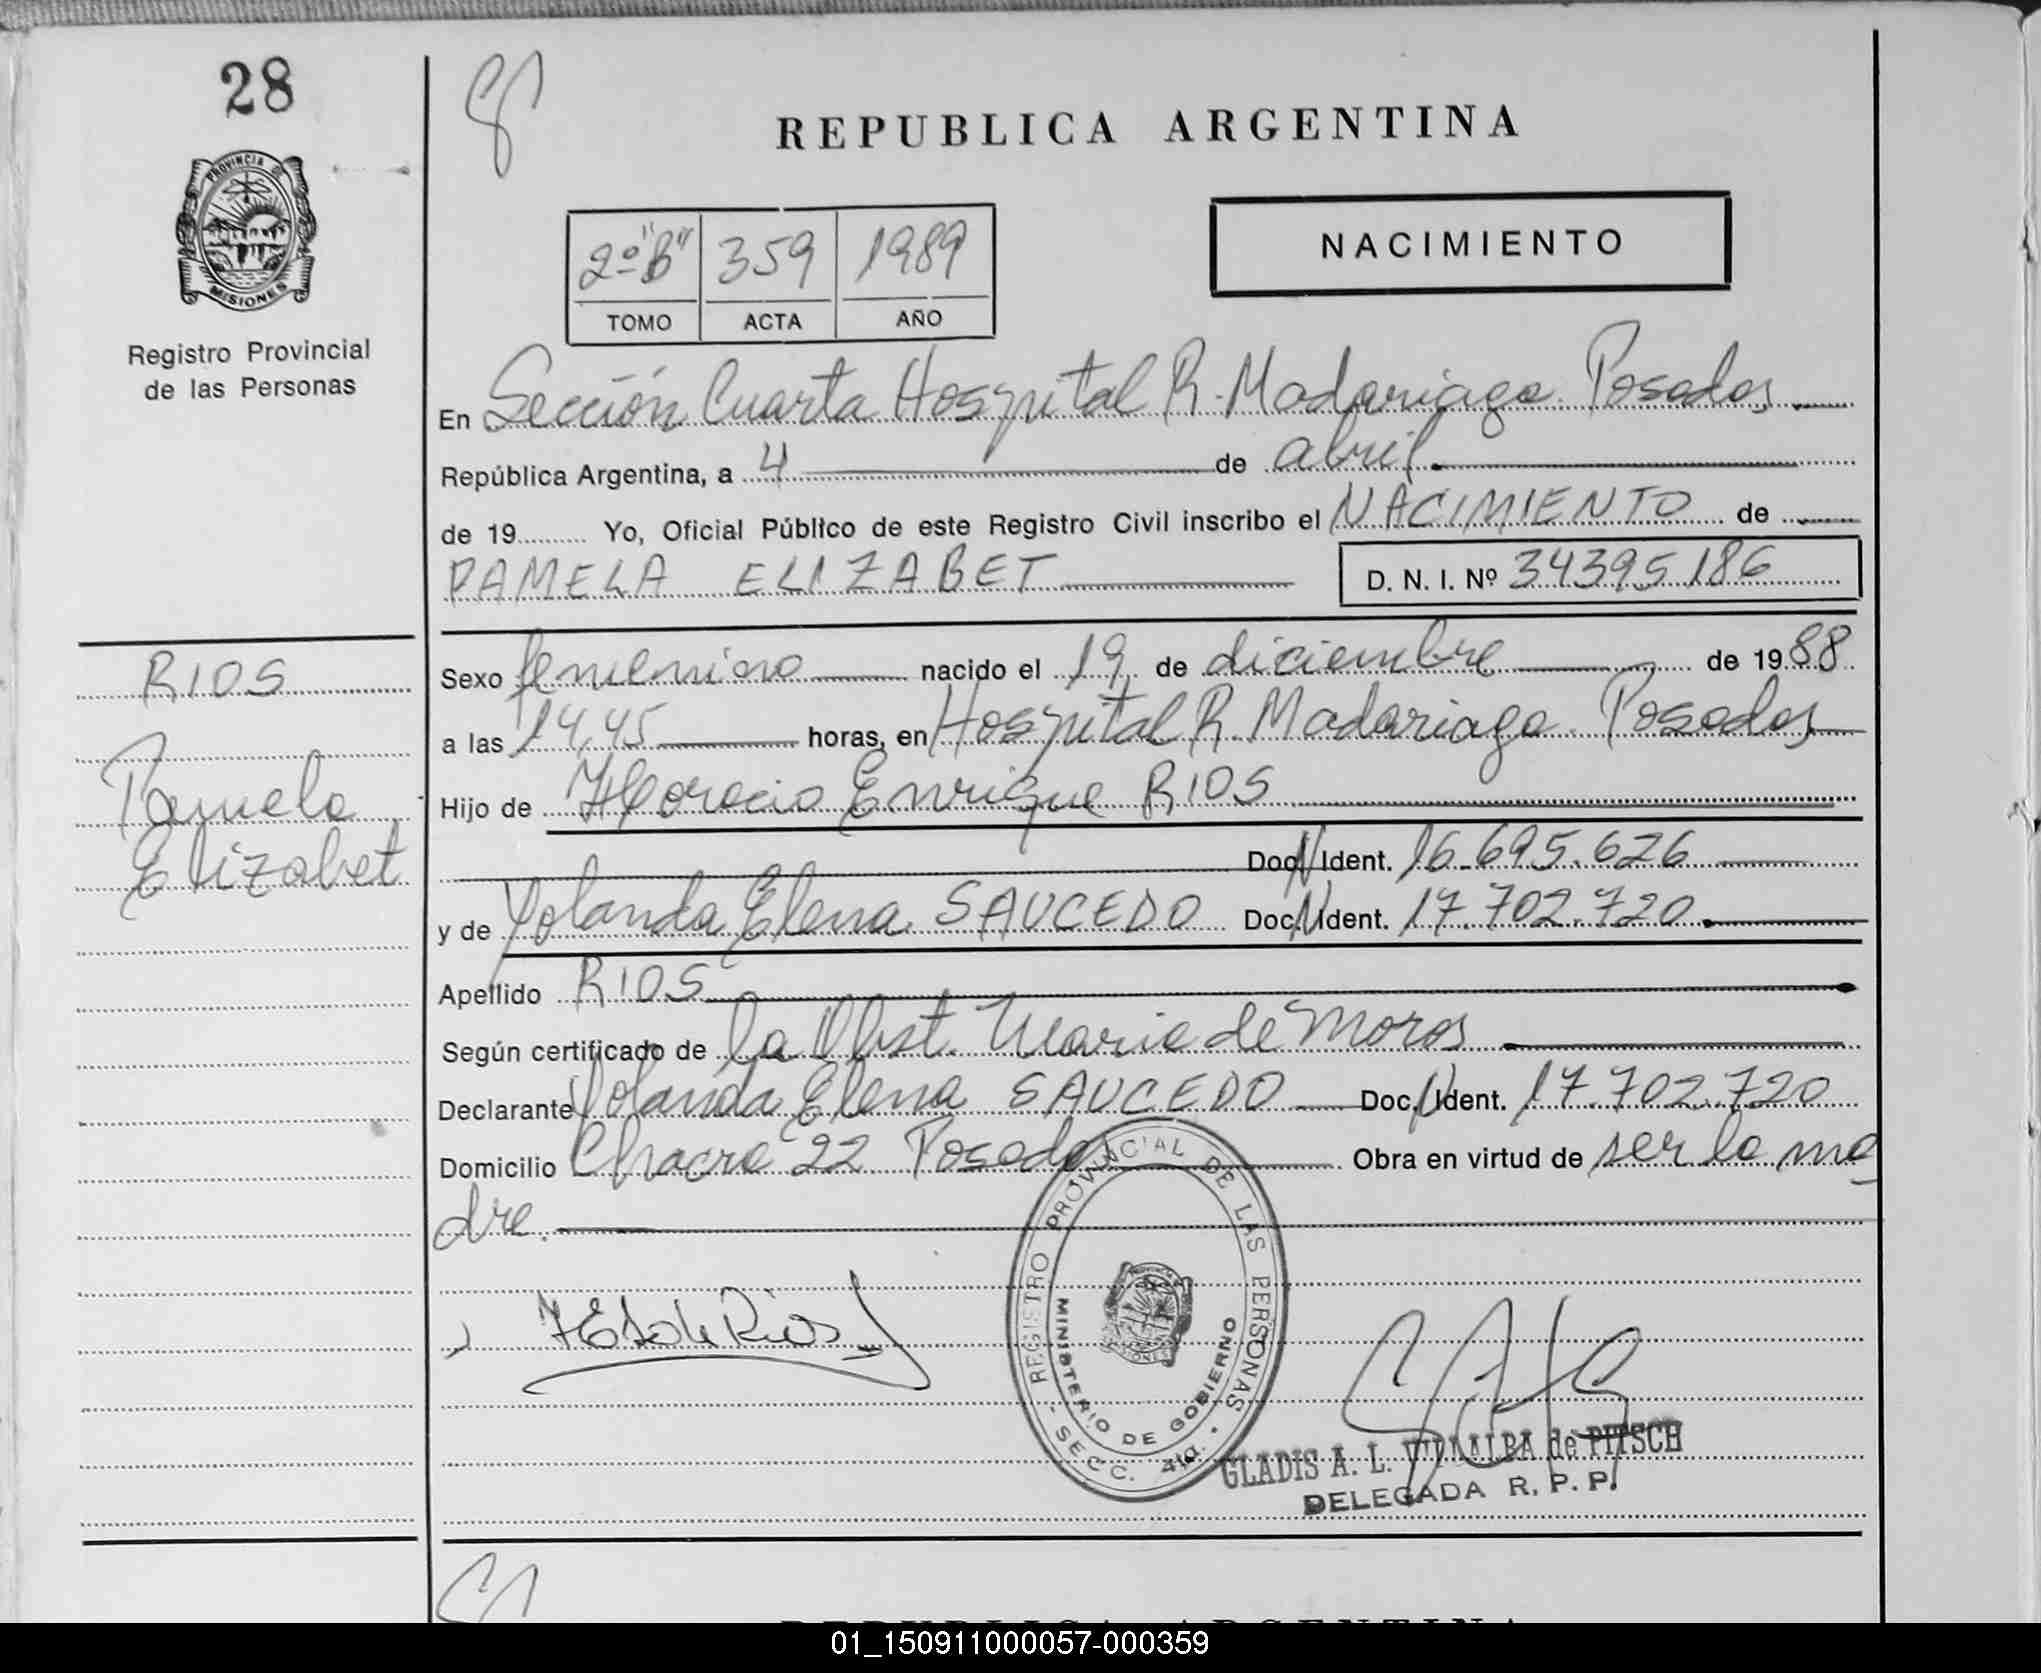 28
PROVINCIA DE
MISIONES
Registro Provincial
de las Personas
REPUBLICA ARGENTINA
NACIMIENTO
2º "B" 359 1989
TOMO ACTA AÑO
En Sección Cuarta Hospital R. Madariaga. Posadas
República Argentina, a 4 de abril.
de 19.......... Yo, Oficial Público de este Registro Civil inscribo el NACIMIENTO de
PAMELA ELIZABET D. N. I. Nº 34395186
RIOS
Pamela
Elizabet
Sexo femenino nacido el 19 de diciembre de 1988
a las 14,45 horas, en Hospital R. Madariaga. Posadas
Hijo de Horacio Enrique RIOS
Doc. N Ident. 16.695.626
y de Yolanda Elena SAUCEDO Doc. N Ident. 17.702.720.
Apellido RIOS
Según certificado de la Obst. Maria de Moros
Declarante Yolanda Elena SAUCEDO Doc. N Ident. 17.702.720
Domicilio Chacra 22 Posadas Obra en virtud de ser la ma
dre.
REGISTRO PROVINCIAL DE LAS PERSONAS
MINISTERIO DE GOBIERNO
- SECC. 4ta. -
GLADIS A. L. VILLALBA de PITSCH
DELEGADA R. P. P.
REPUBLICA ARGENTINA
01_150911000057-000359